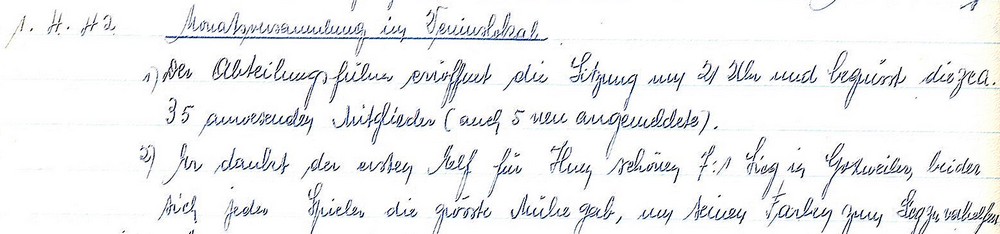 1. 4. 42 Monatsversammlung im Vereinslokal
1) Der Abteilungsführer eröffnet die Sitzung um 21 Uhr und begrüsst die ca.
35 anwesenden Mitglieder (auch 5 neu angemeldete).
2) Er dankt der ersten Elf für Ihren schönen 7:1 Sieg in beider
sich jeder Spieler die grösste Mühe gab, um seinen Farben zum Sieg zu verhelfen